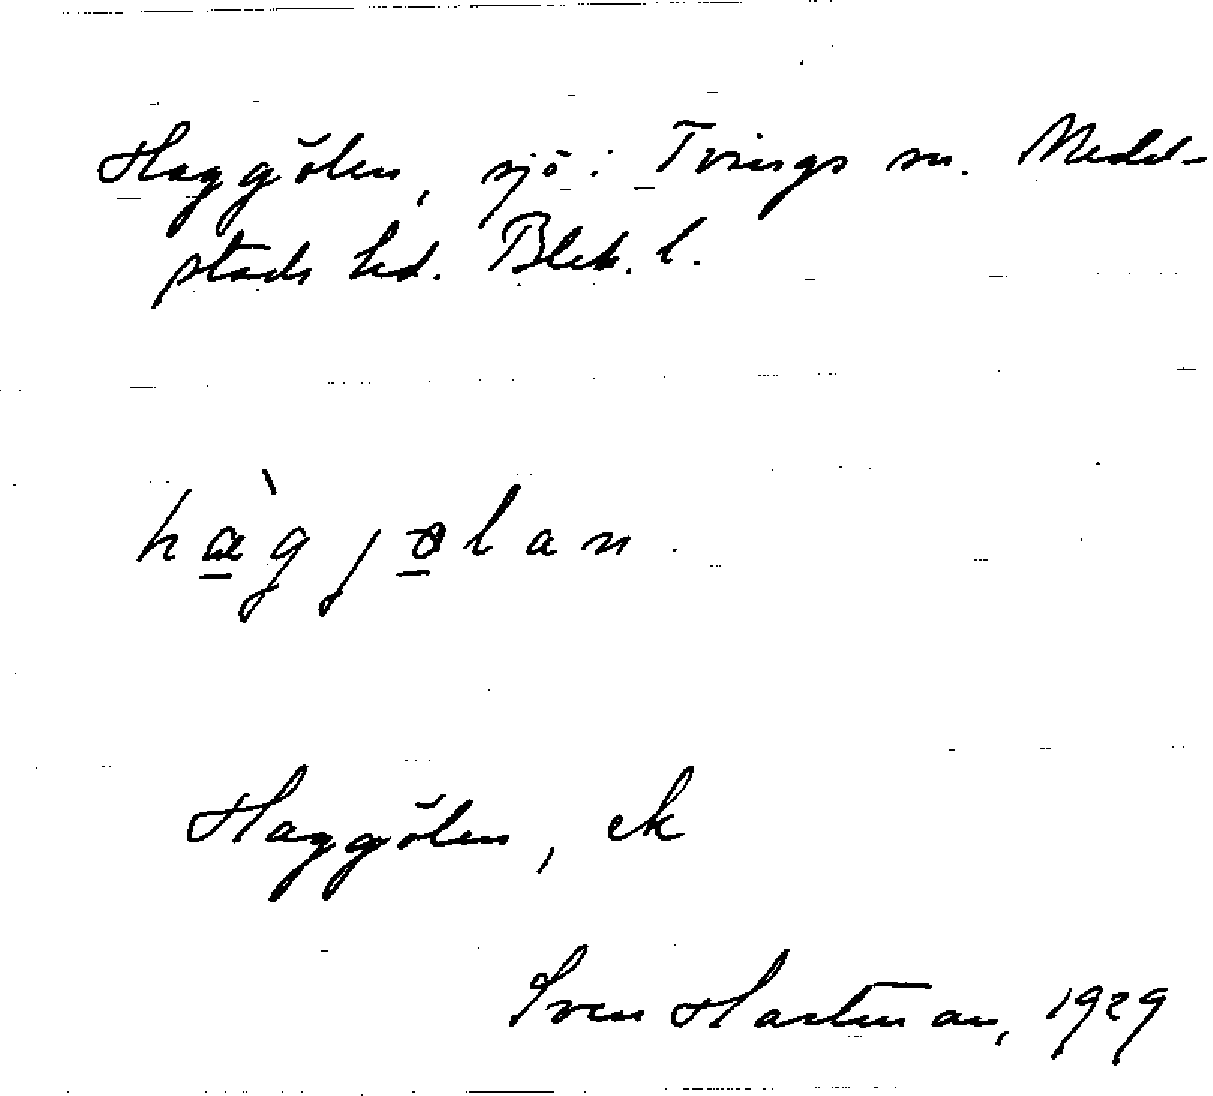 Haggölen, sjö i Tvings sn. Medel-
stads hd. Blek. l.
hàgjølan.
Haggölen, ek
Sven Hartman, 1929